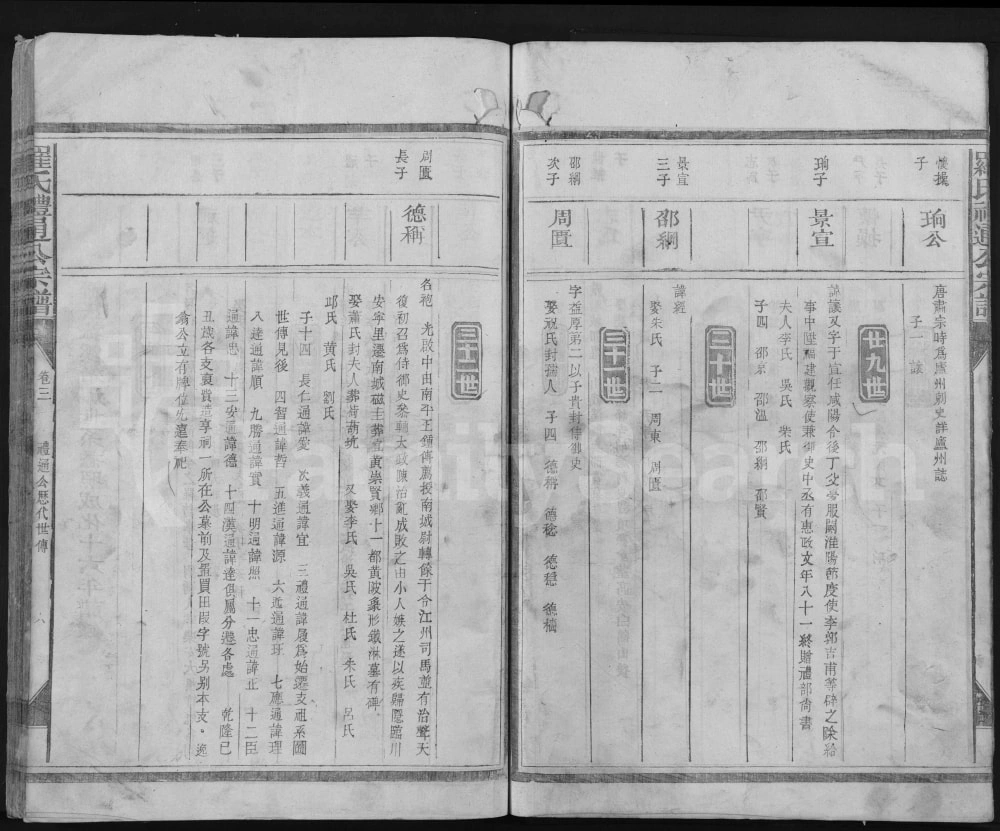 懷操
子
珦公
唐肅宗時爲廬州刺史詳廬州誌
子一 讓
廿九世
珦子
景宣
諱讓又字于宜任咸陽令後丁父憂服闋淮陽節度使李郭吉甫等辟之除給
事中陞福建觀察使兼御史中丞有惠政文年八十一終贈禮部尚書
夫人李氏 吳氏 柴氏
子四 邵京 邵溫 邵綱 邵賢
三十世
景宣
三子
邵綱
諱經
娶朱氏 子二 周東 周匱
三十一世
邵綱
次子
周匱
字益厚第二以子貴封侍御史
娶祝氏封孺人 子四 德稱 德稔 德穩 德楨
三十二世
周匱
長子
德稱
名袍 光啟中由南平王鍾傳薦授南城尉轉餘于令江州司馬並有治聲天
復初召爲侍御史叅輔大政陳治亂成敗之由小人嫉之遂以疾歸隱臨川
安寧里遷南城磁圭葬立黃崇賢鄉十一都黃陂象形鐵淋墓有碑
娶蕭氏封夫人葬荷葫坑 又娶李氏 吳氏 杜氏 朱氏 呂氏
邱氏 黃氏 劉氏
子十四 長仁通諱愛 次義通諱宜 三禮通諱履爲始遷支祖系圖
世傳見後 四智通諱哲 五進通諱源 六近通諱球 七應通諱理
八達通諱順 九勝通諱實 十明通諱照 十一忠通諱止 十二臣
通諱忠 十三安通諱德 十四漢通諱達俱屬分遷各處 乾隆己
丑歲各支裒貲造享祠一所在公墓前及置買田段字號另别本支。遊
翕公立有牌位先進奉祀
羅氏禮通公宗譜
卷三
禮通公歷代世傳
六